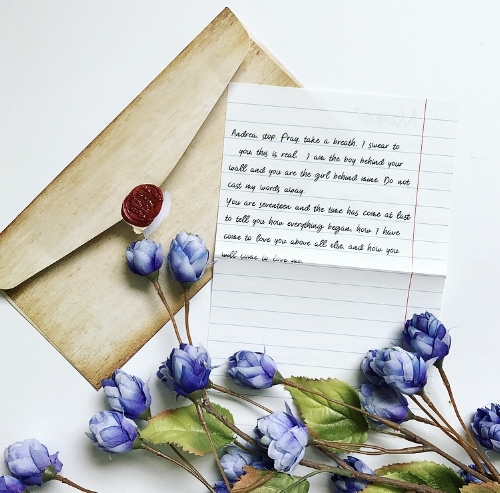 Andrea, stop. Pray, take a breath. I swear to
you this is real. I am the boy behind your
wall and you are the girl behind mine. Do not
cast my words away.
You are seventeen and the time has come at last
to tell you how everything began, how I have
come to love you above all else, and how you
will come to love me.